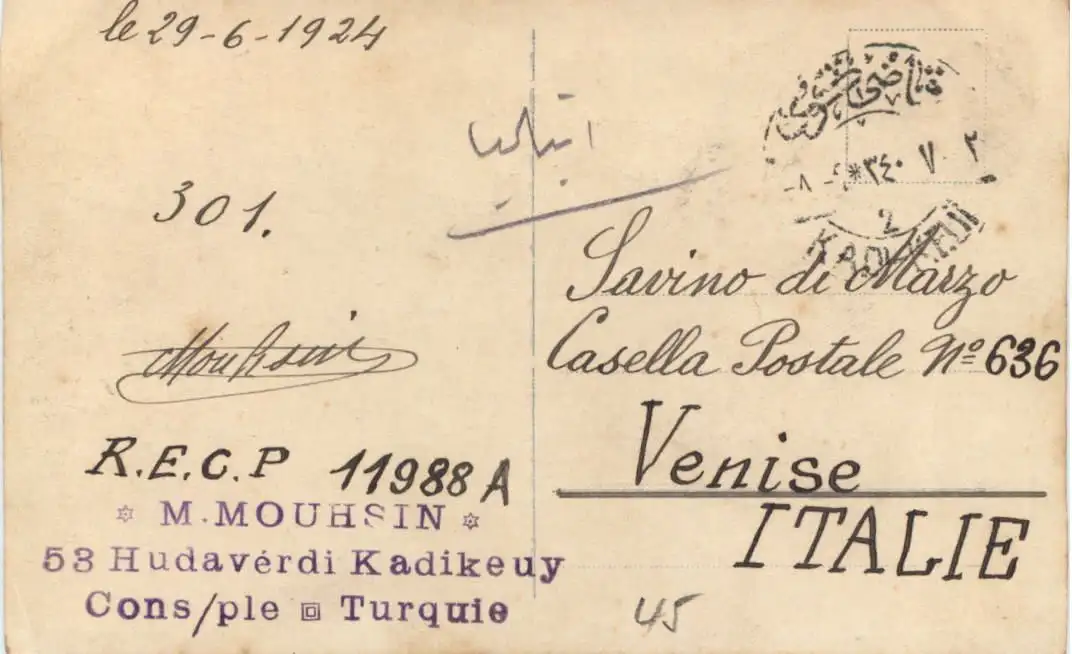 le 29-6-1924
301.
Mouhsin
R.E.C.P 11988 A
M. MOUHSIN
53 Hudavérdi Kadikeuy
Cons/ple Turquie
ايتاليا
قاضيكوى
٣٤٠ ٧ ٢
2
KADIKEUI
Savino di Marzo
Casella Postale Nº 636
Venise
ITALIE
45